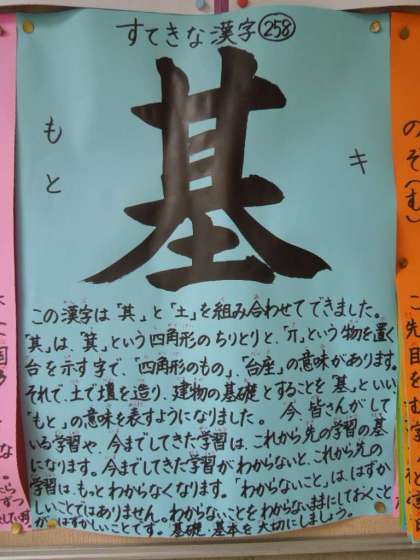 すてきな漢字258
基
もと
キ
この漢字は「其」と「土」を組み合わせてできました。
「其」は、「箕」という四角形のちりとりと、「丌」という物を置く
台を示す字で、「四角形のもの」、「台座」の意味があります。
それで、土で壇を造り、建物の基礎とすることを「基」といい
「もと」の意味を表すようになりました。 今、皆さんがして
いる学習や、今までしてきた学習は、これから先の学習の基
になります。今までしてきた学習がわからないと、これから先の
学習は、もっとわからなくなります。「わからないこと」は、はずか
しいことではありません。わからないことをわからないままにしておくこと
が、はずかしいことです。基礎・基本を大切にしましょう。
のぞ(む)